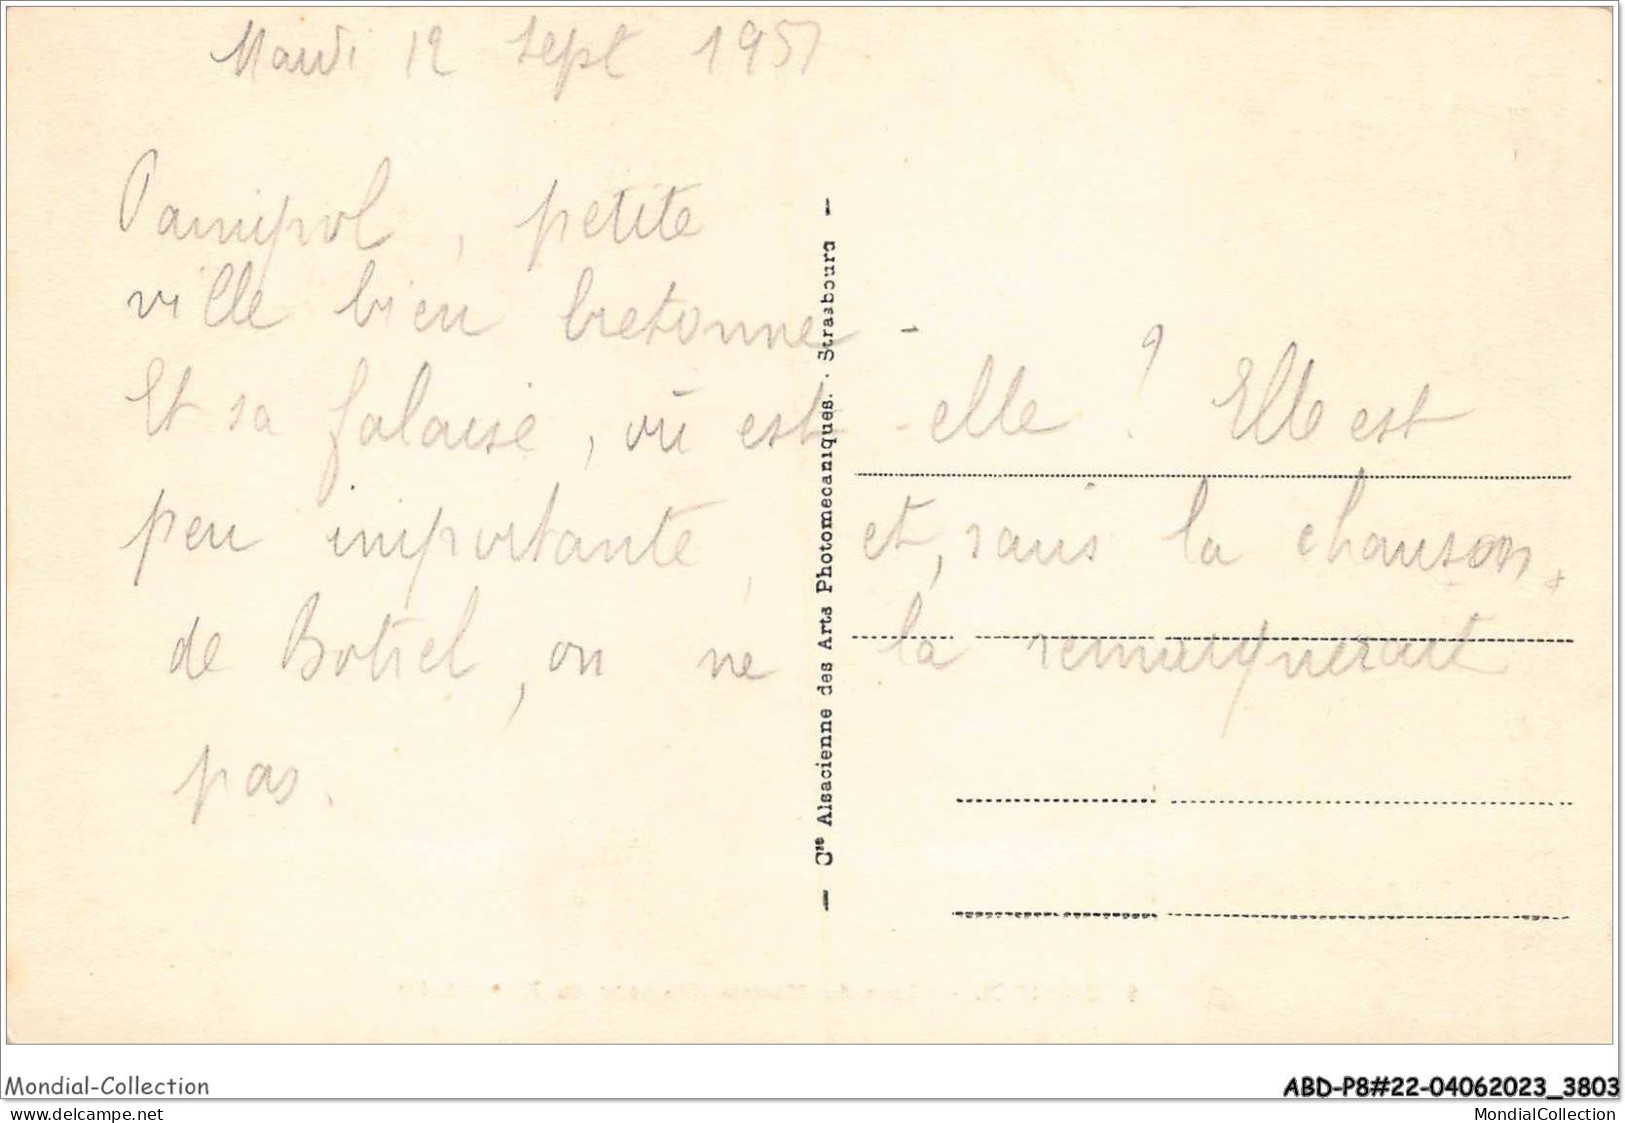 Mardi 12 sept 1951
Paimpol, petite
ville bien bretonne -
Et sa falaise, où est - elle ? Elle est
peu importante, et, sans la chanson,
de Botrel, on ne la remarquerait
pas.
— Cie Alsacienne des Arts Photomecaniques. - Strasbourg —
Mondial-Collection
ABD-P8#22-04062023_3803
www.delcampe.net
MondialCollection